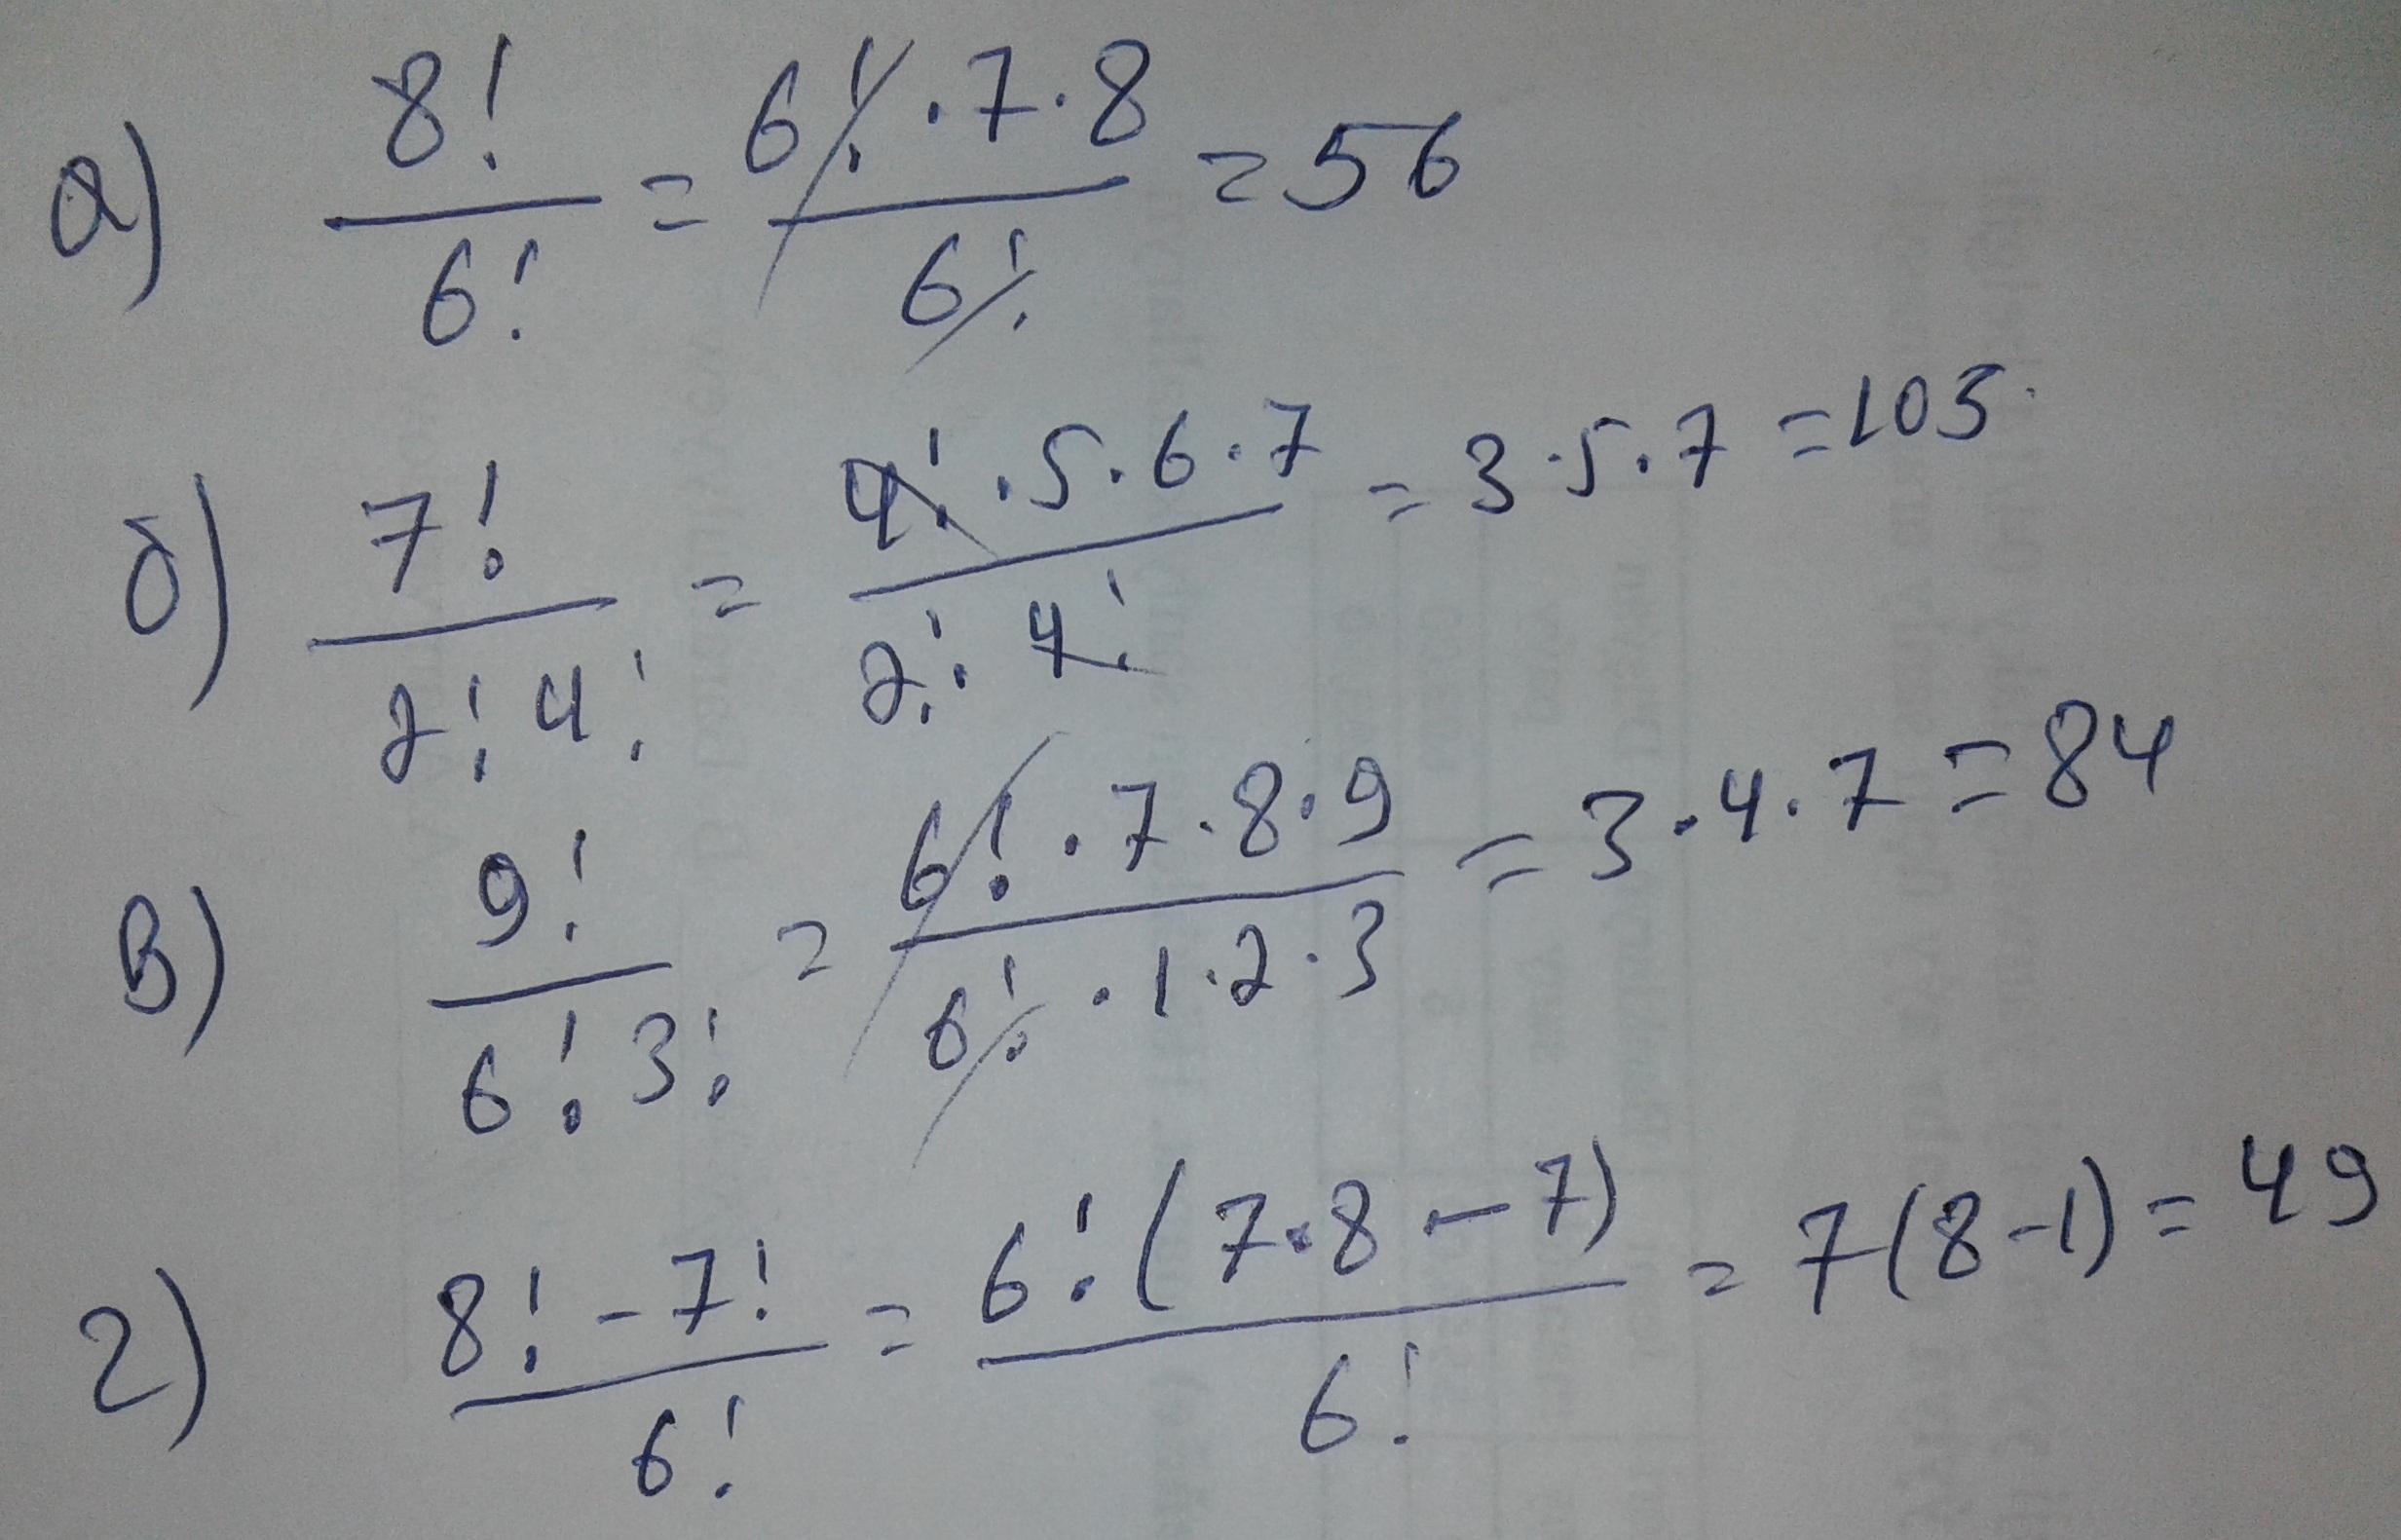 а) 8!/6! = 6!·7·8/6! = 56
б) 7!/2!4! = 4!·5·6·7/2!4! = 3·5·7 = 105
в) 9!/6!3! = 6!·7·8·9/6!·1·2·3 = 3·4·7 = 84
г) 8!-7!/6! = 6!(7·8-7)/6! = 7(8-1) = 49